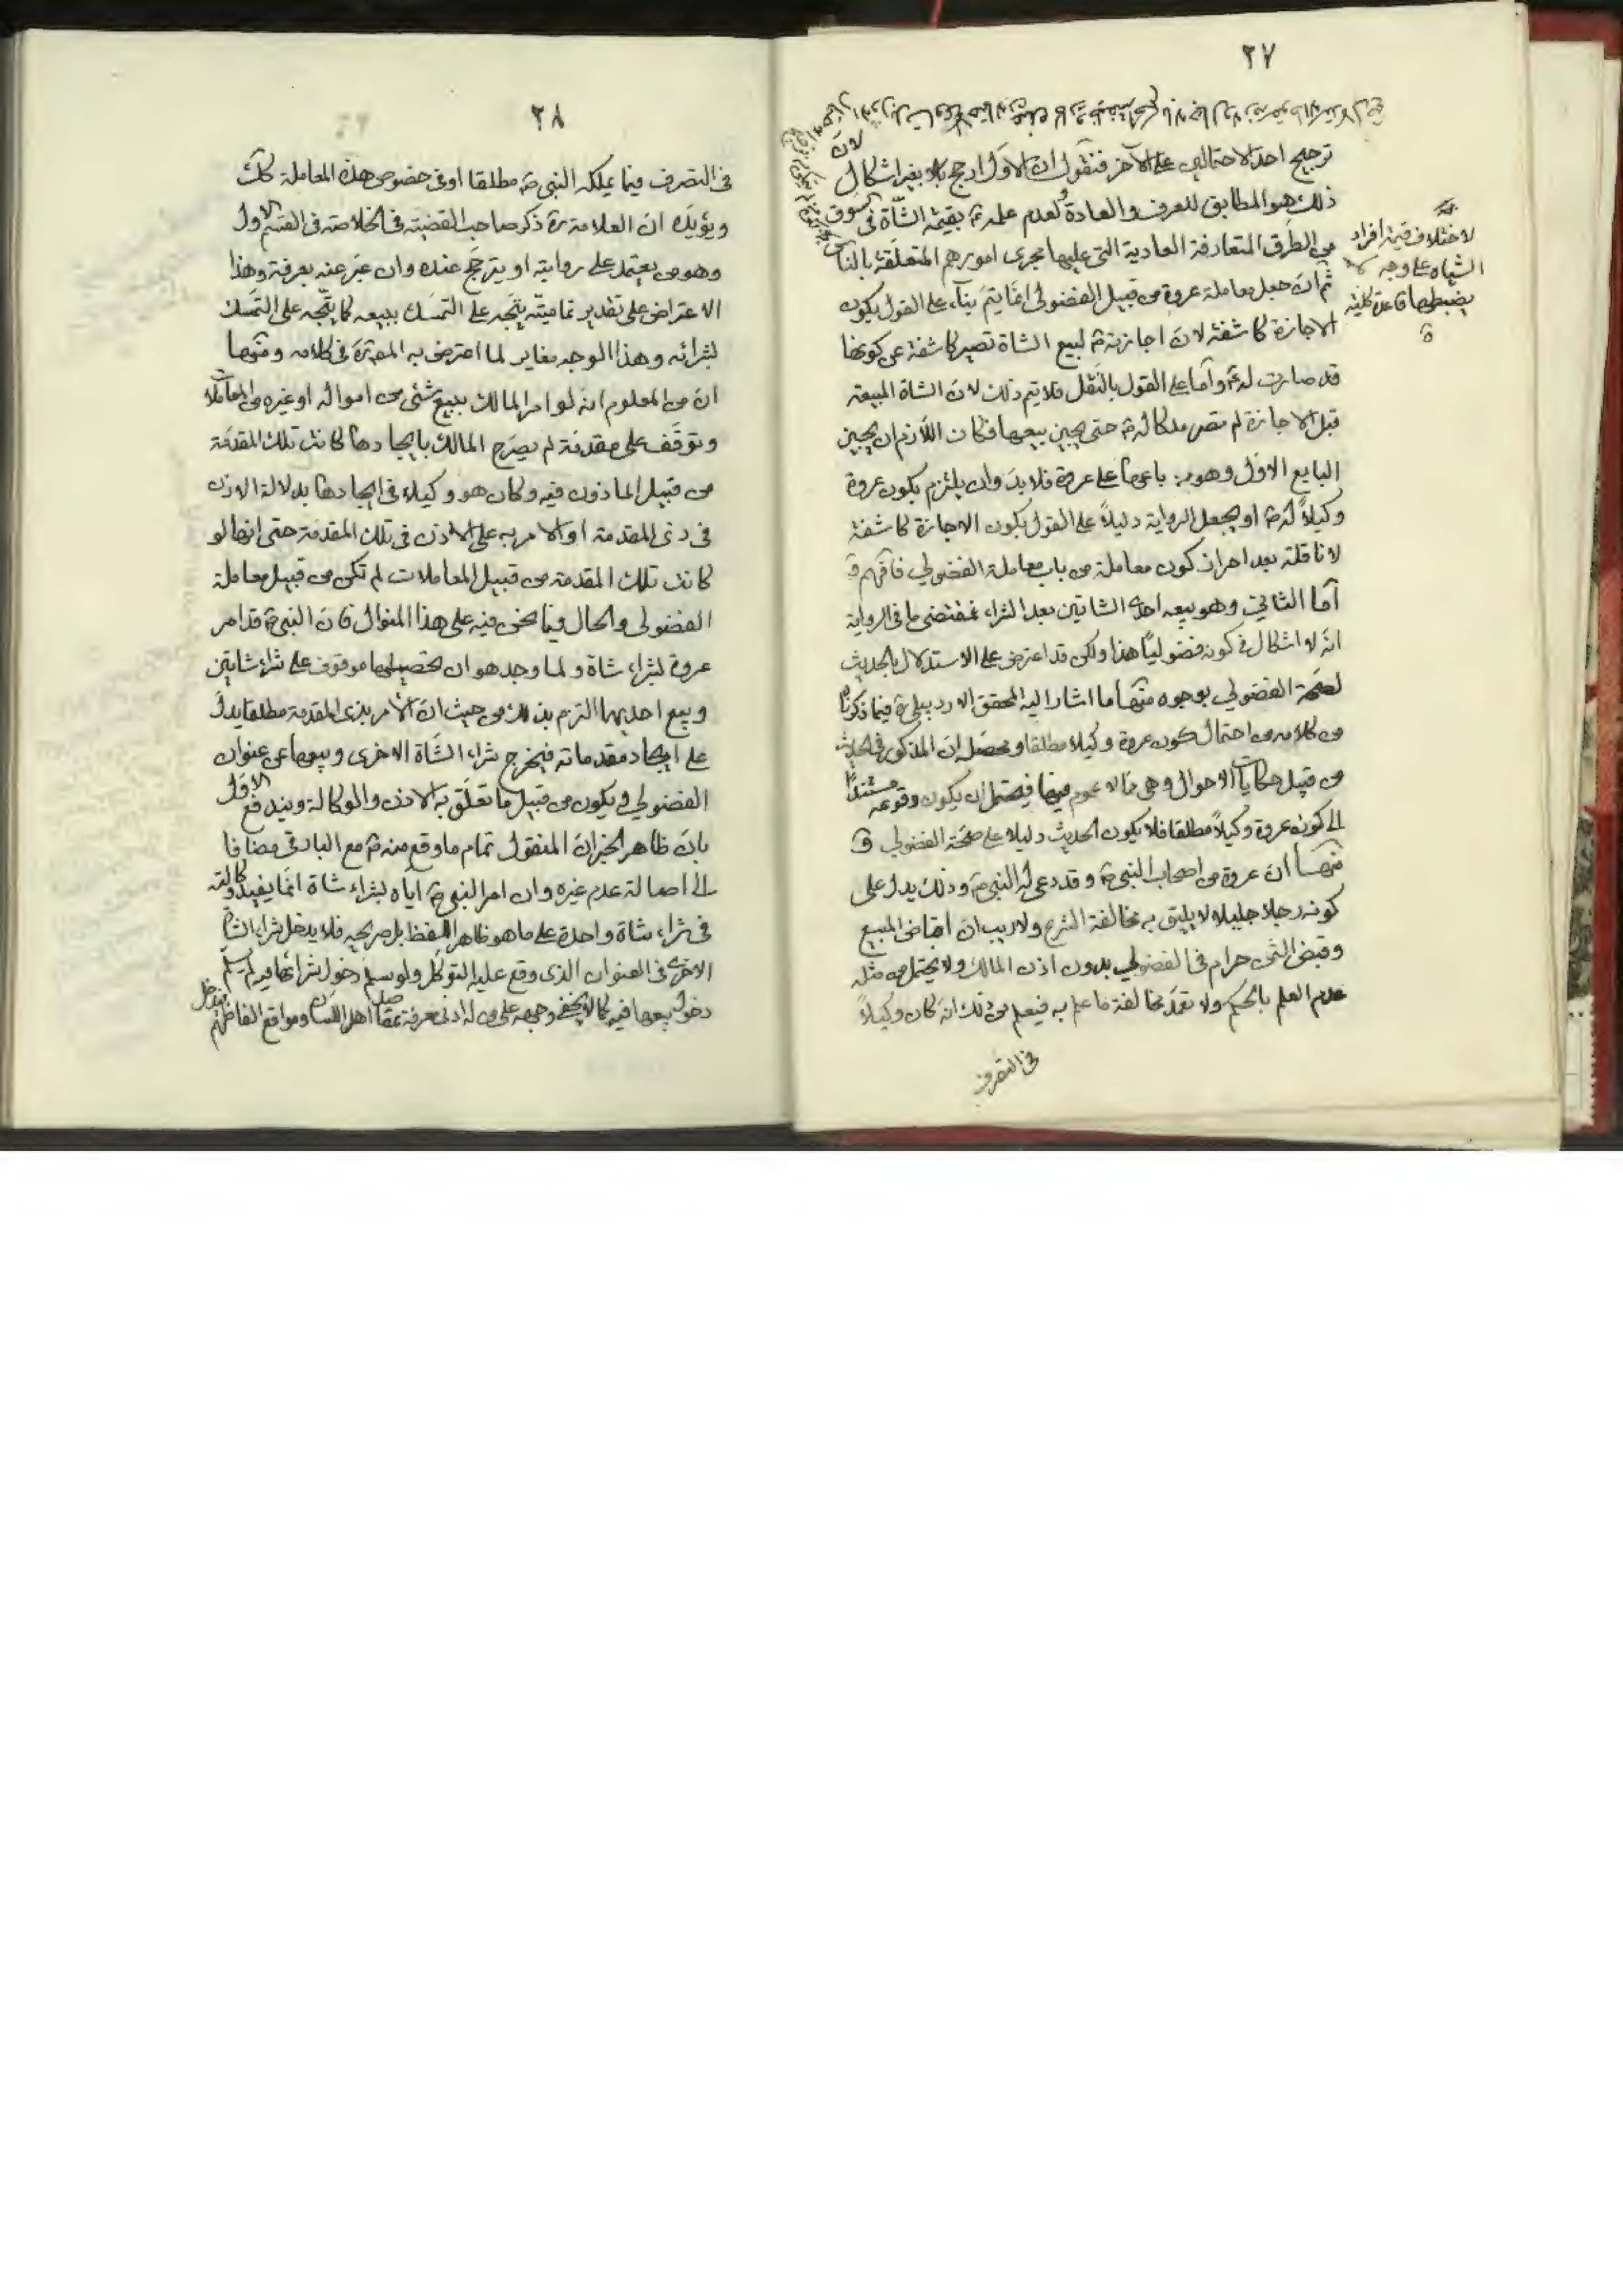 ٢٧
ترجيح احد الاحتمالين على الآخر فنقول ان الاول ارجح بلا بغير اشكال لانّ
ذلك هو المطابق للعرف والعادة ولعدم علمه ص بقيمة الشّاة في السوق
من الطرق المتعارفة العادية التي عليها مجرى امورهم المتعلّقة بالناس
ثم انّ جعل معاملة عروة من قبيل الفضولي انّما يتم بناء على القول بكون
الاجازة كاشفة لانّ اجازته ص لبيع الشاة تصير كاشفة عن كونها
قد صارت له ص وامّا على القول بالنّقل فلا يتم ذلك لانّ الشاة المبيعة
قبل الاجازة لم تصر ملكا له ص حتى يجيز بيعها فكان اللّازم ان يجيز
البايع الاول وهو من باعها على عروة فلا بدّ وان يلتزم بكون عروة
وكيلاً له ص او يجعل الرواية دليلاً على القول بكون الاجازة كاشفة
لا ناقلة بعد احراز كون معاملته من باب معاملة الفضولي فافهم و
امّا الثاني وهو بيعه احدى الشاتين بعد الشراء فمقتضى ما في الرواية
انّه لا اشكال في كونه فضوليّا هذا ولكن قد اعترض على الاستدلال بالحديث
لصحّة الفضولي بوجوه منها ما اشار اليه المحقق الاردبيلي ره فيما ذكرناه
من كلامه من احتمال كون عروة وكيلا مطلقا ومحصّله ان المذكور في الحديث
من قبيل حكايات الاحوال وهي ممّا لا عموم فيها فيحتمل ان يكون وقوعه مستندًا
الى كونه عروة وكيلاً مطلقا فلا يكون الحديث دليلا على صحّة الفضولي و
منها انّ عروة من اصحاب النبي ص وقد دعى له النبي ص وذلك يدل على
كونه رجلا جليلا لا يليق به مخالفة الشرع ولا ريب ان اقباض المبيع
وقبض الثمن حرام في الفضولي بدون اذن المالك ولا يحتمل من مثله
عدم العلم بالحكم ولا تعمّد مخالفة ما علم به فيعلم من ذلك انّه كان وكيلاً
في التصرف
لاختلاف قيمة افراد
الشياه على وجه لا
يضبطها قاعدة كلية
٢٨
في التصرف فيما يملكه النبي ص مطلقا او في خصوص هذه المعاملة كك
ويؤيده انّ العلامة ره ذكر صاحب القضيّة في الخلاصة في القسم الاول
وهو من يعتمد على روايته او يترجّح عنده وان عبّر عنه بعرفة وهذا
الاعتراض على تقدير تماميّته يتّجه على التمسّك ببيعه كما يتّجه على التمسّك
بشرائه وهذا الوجه مغاير لما اعترض به المحقق ره في كلامه ومنها
ان من المعلوم انه لو امر المالك ببيع شئ من امواله او غيره من المعاملات
وتوقّف على مقدّمة لم يصرّح المالك بايجادها كانت تلك المقدّمة
من قبيل الماذون فيه وكان هو وكيلا في ايجادها بدلالة الاذن
في ذى المقدمة او الامر به على الاذن في تلك المقدّمة حتى انها لو
كانت تلك المقدمة من قبيل المعاملات لم تكن من قبيل معاملة
الفضولي والحال فيما نحن فيه على هذا المنوال فان النبي ص قد امر
عروة بشراء شاة ولما وجد هو ان تحصيلها موقوف على شراء شاتين
وبيع احديهما التزم بذلك من حيث انّ الأمر بذى المقدمة مطلقا يدل
على ايجاد مقدماته فيخرج شراء الشّاة الاخرى وبيعها عن عنوان
الفضولي ويكون من قبيل ما تعلّق به الاذن والوكالة ويندفع الاوّل
بانّ ظاهر الخبر انّ المنقول تمام ما وقع منه ص مع البارقي مضافا
الى اصالة عدم غيره وان امر النبي ص اياه بشراء شاة انّما يفيد وكالته
في شراء شاة واحدة على ما هو ظاهر اللّفظ بل صريحه فلا يدخل شراء الشاة
الاخرى في العنوان الذى وقع عليه التوكّل ولو سلم دخول شرائها فيه لم يسلّم
دخول بيعها فيه كما لا يخفى وجهه على من له ادنى معرفة بمقاصد اهل اللّسان ومواقع الفاظهم